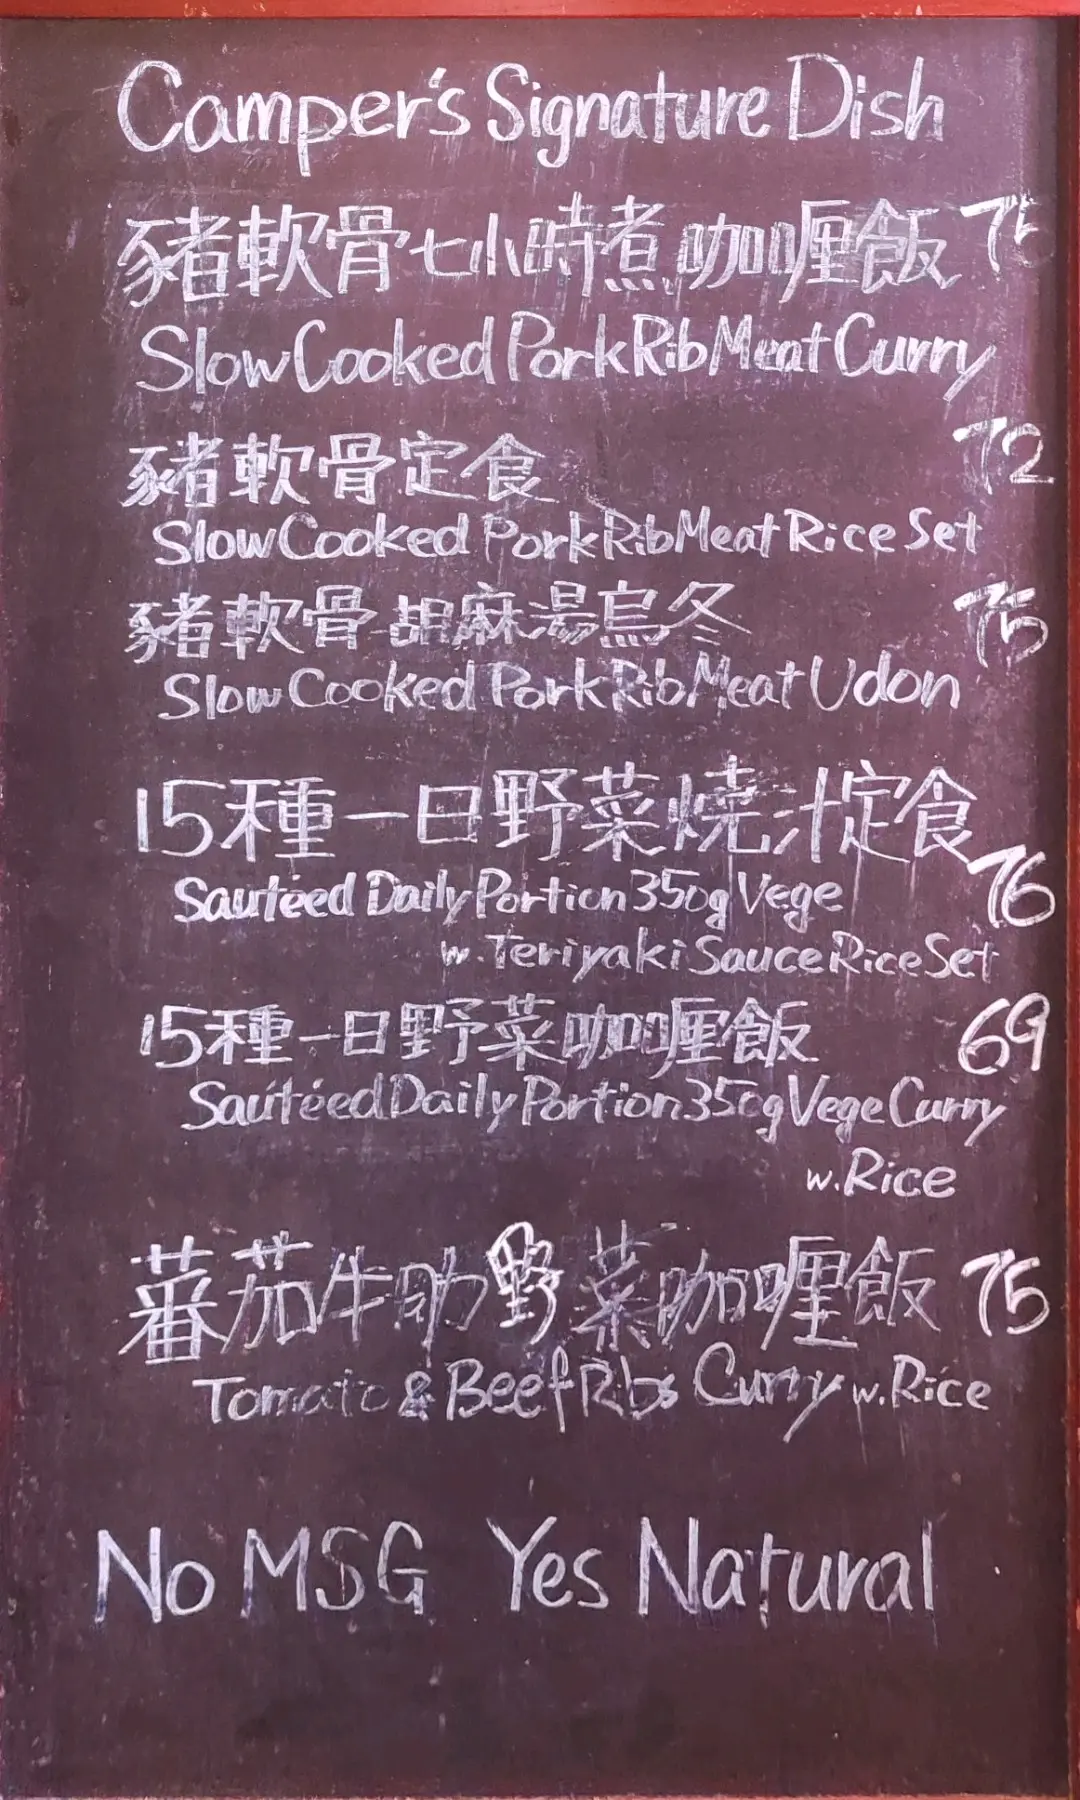 Camper's Signature Dish
豬軟骨七小時煮咖喱飯 75
Slow Cooked Pork Rib Meat Curry
豬軟骨定食 72
Slow Cooked Pork Rib Meat Rice Set
豬軟骨胡麻湯烏冬 75
Slow Cooked Pork Rib Meat Udon
15種一日野菜燒汁定食
Sautéed Daily Portion 350g Vege 76
w. Teriyaki Sauce Rice Set
15種一日野菜咖喱飯 69
Sautéed Daily Portion 350g Vege Curry
w. Rice
蕃茄牛肋野菜咖喱飯 75
Tomato & Beef Ribs Curry w. Rice
No MSG Yes Natural